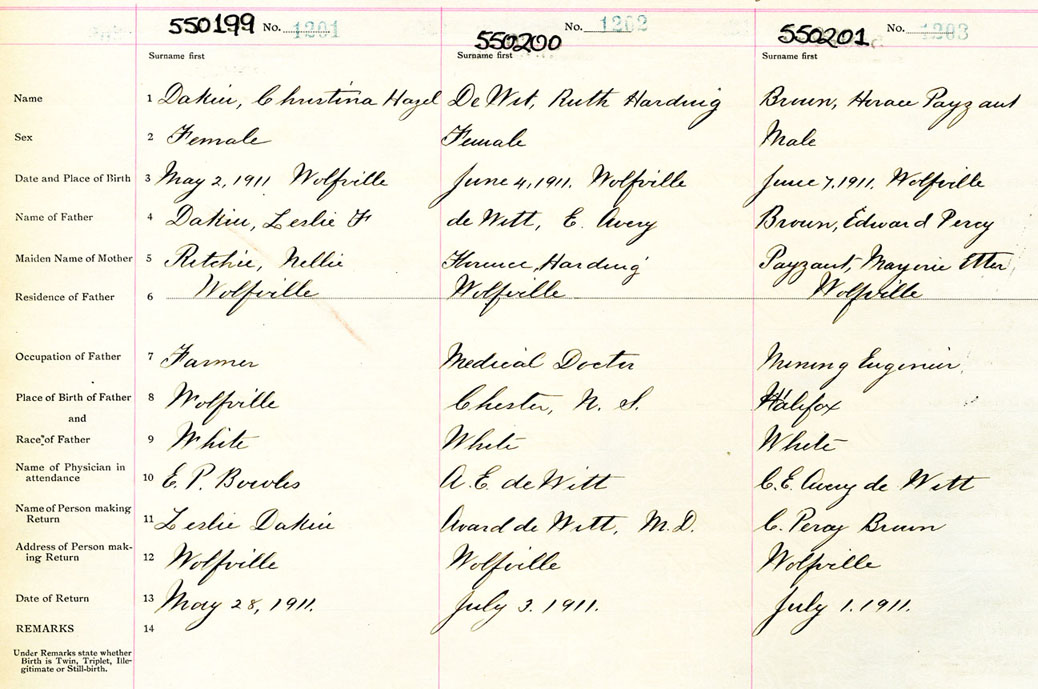 550199 No. 1201 550200 No. 1202 550201 No. 1203
Surname first Surname first Surname first
Name 1 Dakin, Christina Hazel De Wit, Ruth Harding Brown, Horace Payzant
Sex 2 Female Female Male
Date and Place of Birth 3 May 2, 1911 Wolfville June 4, 1911. Wolfville June 7, 1911. Wolfville
Name of Father 4 Dakin, Leslie F de Witt, E. Avery Brown, Edward Percy
Maiden Name of Mother 5 Ritchie, Nellie Florence, Harding Payzant, Marjorie Etter,
Residence of Father 6 Wolfville Wolfville Wolfville
Occupation of Father 7 Farmer Medical Doctor Mining Engineer.
Place of Birth of Father 8 Wolfville Chester, N. S. Halifax
and
Race of Father 9 White White White
Name of Physician in
attendance 10 E. P. Bowles A. E. de Witt C. E. Avery de Witt
Name of Person making
Return 11 Leslie Dakin Avard de Witt, M.D. C. Percy Brown
Address of Person mak-
ing Return 12 Wolfville Wolfville Wolfville
Date of Return 13 May 28, 1911. July 3. 1911. July 1. 1911.
REMARKS 14
Under Remarks state whether
Birth is Twin, Triplet, Ille-
gitimate or Still-birth.